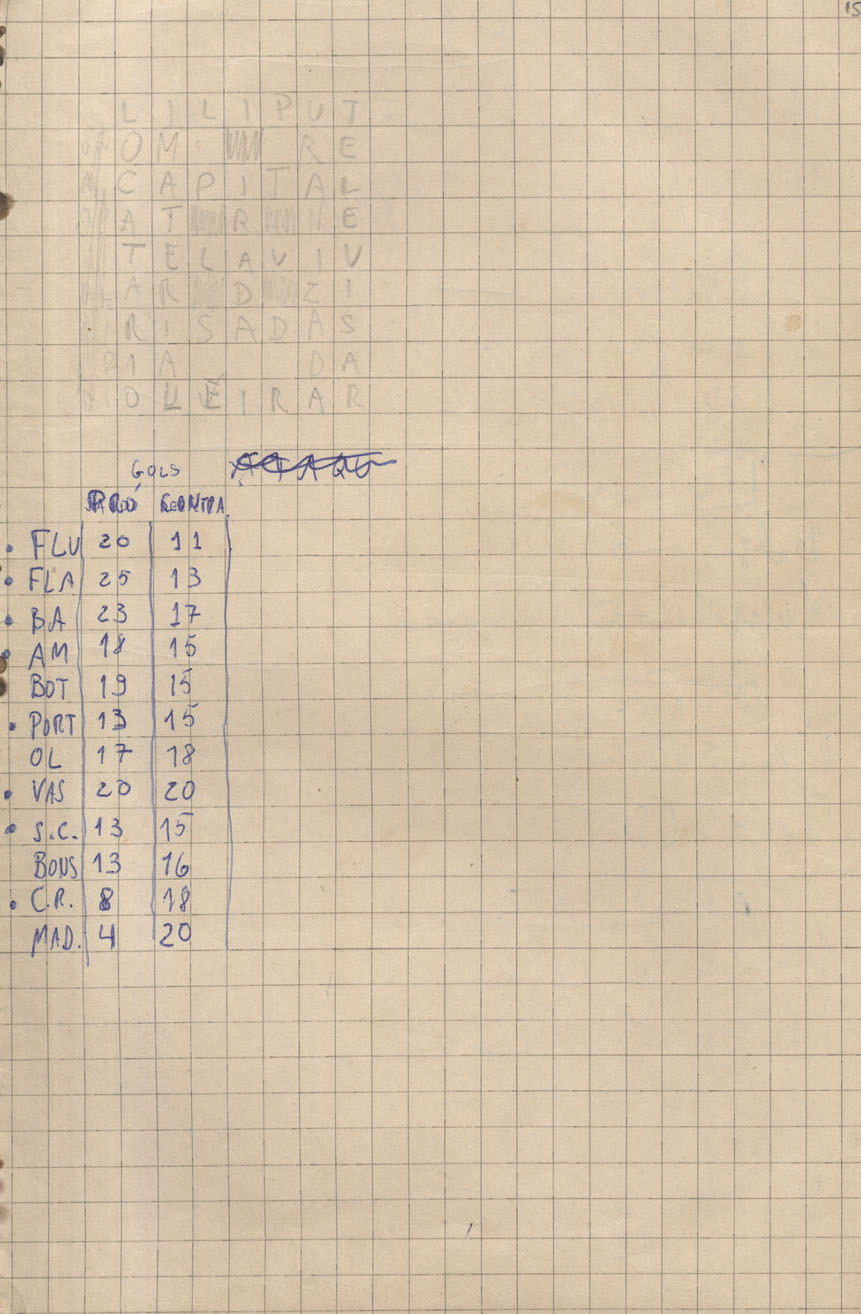 15
L I L I P U T
O M R E
C A P I T A L
A T R E
T E L A V I V
A R D Z I
R I S A D A S
I A D A
O L E I R A R
GOLS
PRÓ CONTRA
• FLU 20 11
• FLA 25 13
• BA 23 17
• AM 18 15
BOT 19 15
• PORT 13 15
OL 17 18
• VAS 20 20
• S.C. 13 15
BONS 13 16
• C.R. 8 18
MAD. 4 20